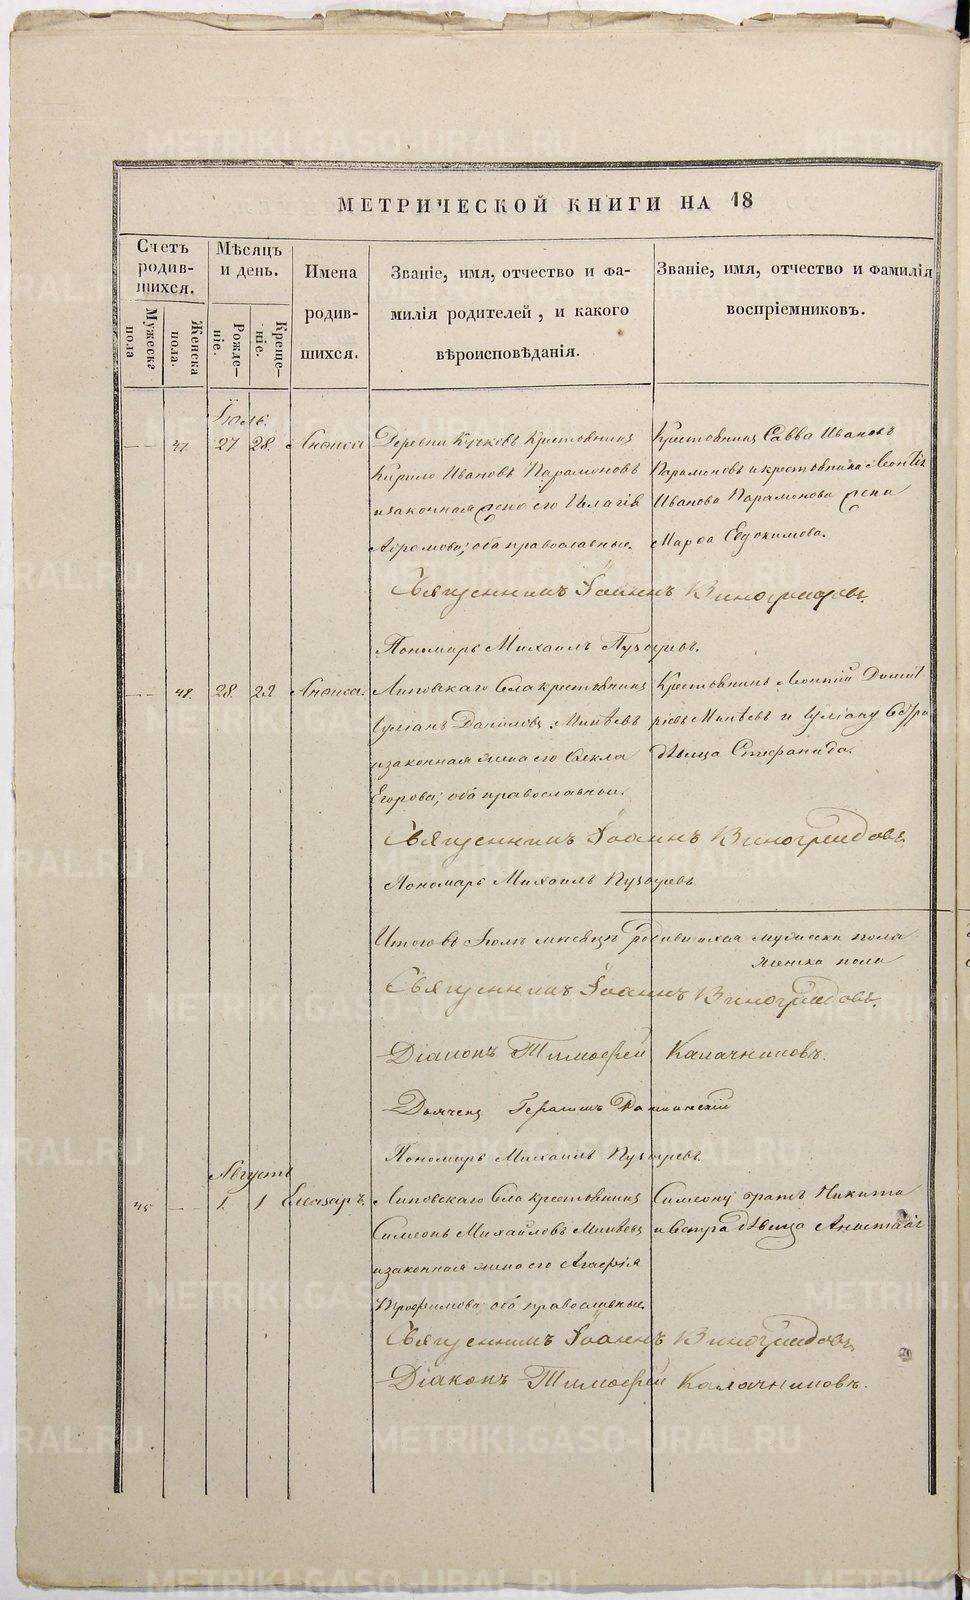 МЕТРИЧЕСКОЙ КНИГИ НА 18
Счетъ родив-шихся.
Мужеска пола
Женска пола.
Мѣсяцъ и день.
Рожде-ніе.
Креще-ніе.
Имена родив-шихся.
Званіе, имя, отчество и фа-
милія родителей, и какого
вѣроисповѣданія.
Званіе, имя, отчество и фамилія
воспріемниковъ.
Іюль.
47 27 28. Анѳиса Деревни Кучковъ Крестьянинъ Крестьянинъ Савва Ивановъ
Кирило Ивановъ Парамоновъ Парамоновъ и крестьянина Леонтія
и законная жена его Пелагія Иванова Парамонова жена
Абрамова; оба православные. Марѳа Евдокимова.
Священникъ Іоаннъ Виноградовъ.
Пономарь Михаилъ Пузыревъ.
48. 28. 29 Анѳиса. Липовскаго Села крестьянинъ Крестьянинъ Леонтій Димит
Іуліанъ Даниловъ Минѣевъ ріевъ Минѣевъ и Іуліану Сестра
и законная жена его Ѳекла дѣвица Стефанида.
Егорова; оба православные.
Священникъ Іоаннъ Виноградовъ
Пономарь Михаилъ Пузыревъ
Итого въ Іюлѣ мѣсяцѣ родившихся мужеска пола
женска пола
Священникъ Іоаннъ Виноградовъ.
Діаконъ Тимоѳей Калачниковъ.
Дьячекъ Герасимъ
Пономарь Михаилъ Пузыревъ.
Августъ
45 1. 1 Елеазаръ. Липовскаго Села крестьянинъ Симеону братъ Никита
Симеонъ Михайловъ Минѣевъ и Сестра дѣвица Анастасія
и законная жена его Агафія
Трофимова оба православные.
Священникъ Іоаннъ Виноградовъ
Діаконъ Тимоѳей Калачниковъ.
METRIKI.GASO-URAL.RU